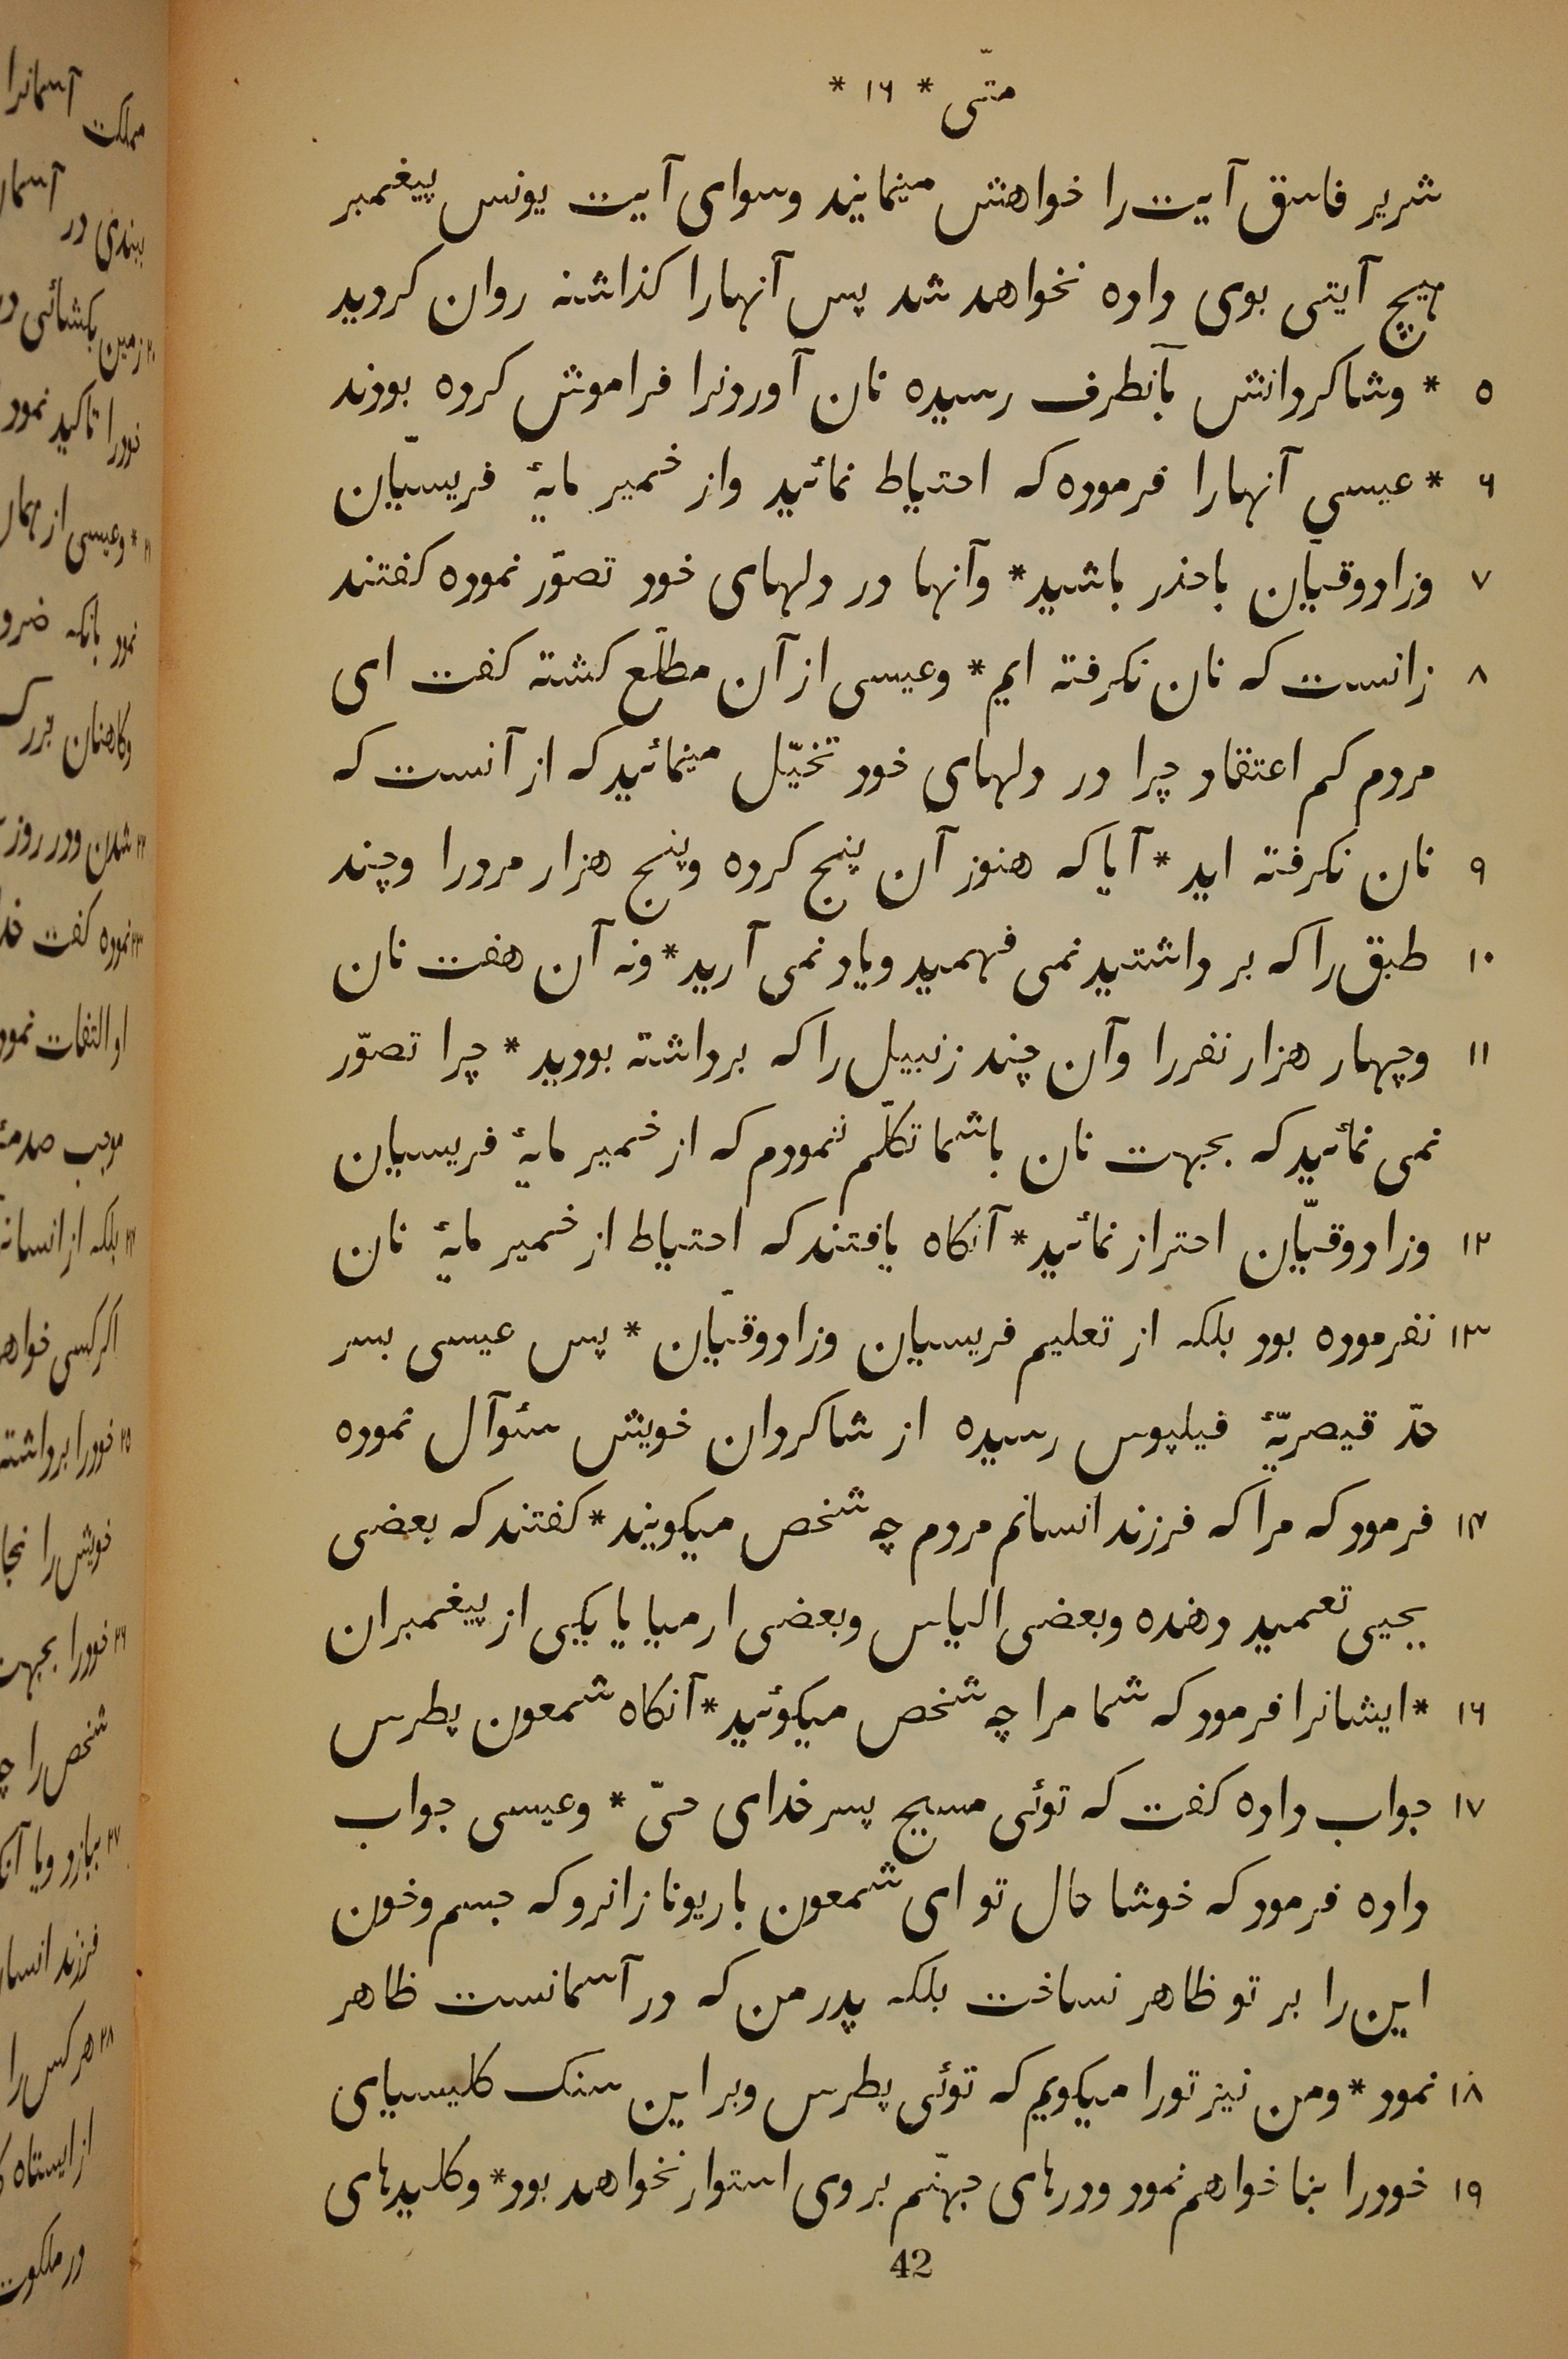 متّی * ۱۶ *
شریر فاسق آیت را خواهش مینمایند وسوای آیت یونس پیغمبر
هیچ آیتی بوی داده نخواهد شد پس آنهارا کذاشته روان کردید
۵ * وشاکردانش بآنطرف رسیده نان آوردنرا فراموش کرده بودند
۶ * عیسی آنهارا فرموده که احتیاط نمائید واز خمیر مایۀ فریسیّان
۷ وزادوقیّان باحذر باشید * وآنها در دلهای خود تصوّر نموده کفتند
۸ زانست که نان نکرفته ایم * وعیسی از آن مطلّع کشته کفت ای
مردم کم اعتقاد چرا در دلهای خود تخیّل مینمائید که از آنست که
۹ نان نکرفته اید * آیا که هنوز آن پنج کرده وپنج هزار مردرا وچند
۱۰ طبق را که بر داشتید نمی فهمید ویاد نمی آرید * ونه آن هفت نان
۱۱ وچهار هزار نفررا وآن چند زنبیل را که برداشته بودید * چرا تصوّر
نمی نمائید که بجهت نان باشما تکلّم ننمودم که از خمیر مایۀ فریسیان
۱۲ وزادوقیّان احتراز نمائید * آنکاه یافتند که احتیاط از خمیر مایۀ نان
۱۳ نفرموده بود بلکه از تعلیم فریسیان وزادوقیّان * پس عیسی بسر
حدّ قیصریّۀ فیلپوس رسیده از شاکردان خویش سئوآل نموده
۱۴ فرمود که مرا که فرزند انسانم مردم چه شخص میکویند * کفتند که بعضی
یحیی تعمید دهنده وبعضی الیاس وبعضی ارمیا یا یکیی از پیغمبران
۱۶ * ایشانرا فرمود که شما مرا چه شخص میکوئید * آنکاه شمعون پطرس
۱۷ جواب داده کفت که توئی مسیح پسر خدای حیّ * وعیسی جواب
داده فرمود که خوشا حال تو ای شمعون باریونا زانرو که جسم وخون
این را بر تو ظاهر نساخت بلکه پدر من که در آسمانست ظاهر
۱۸ نمود * ومن نیز تورا میکویم که توئی پطرس وبر این سنک کلیسیای
۱۹ خودرا بنا خواهم نمود ودرهای جهنّم بر وی استوار نخواهد بود * وکلیدهای
42